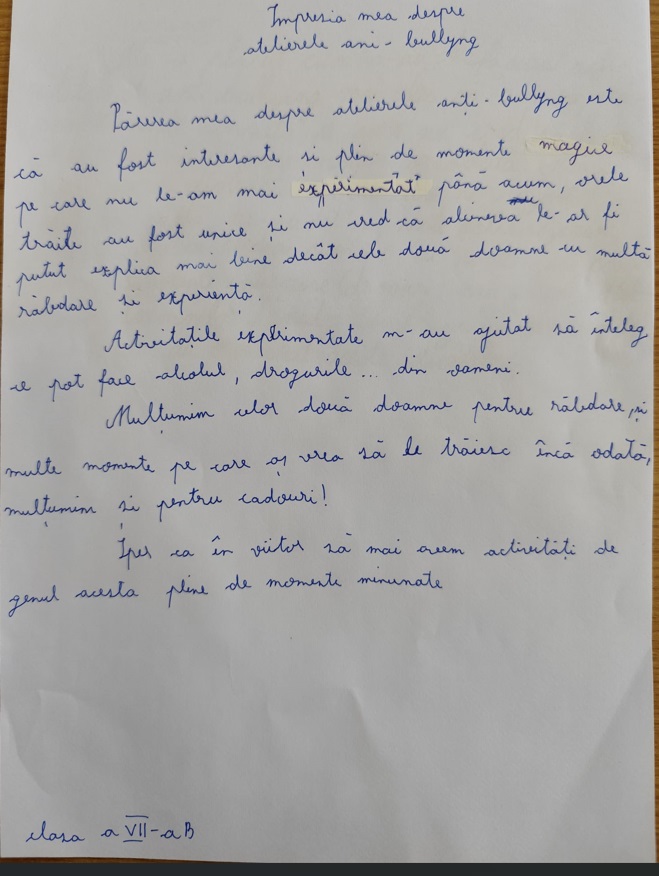 Impresia mea despre
atelierele ani - bullyng
Părerea mea despre atelierele anti - bullyng este
că au fost interesante si plin de momente magice
pe care nu le-am mai experimentat până acum, orele
trăite au fost unice și nu cred că altcineva le-ar fi
putut explica mai bine decât cele două doamne cu multă
răbdare și experiență.
Activitațile experimentate m-au ajutat să înteleg
ce pot face alcolul, drogurile... din oameni.
Mulțumim celor două doamne pentru răbdare, și
multe momente pe care aș vrea să le trăiesc încă odată,
mulțumim și pentru cadouri!
Sper ca în viitor să mai avem activități de
genul acesta pline de momente minunate
clasa a VII-a B